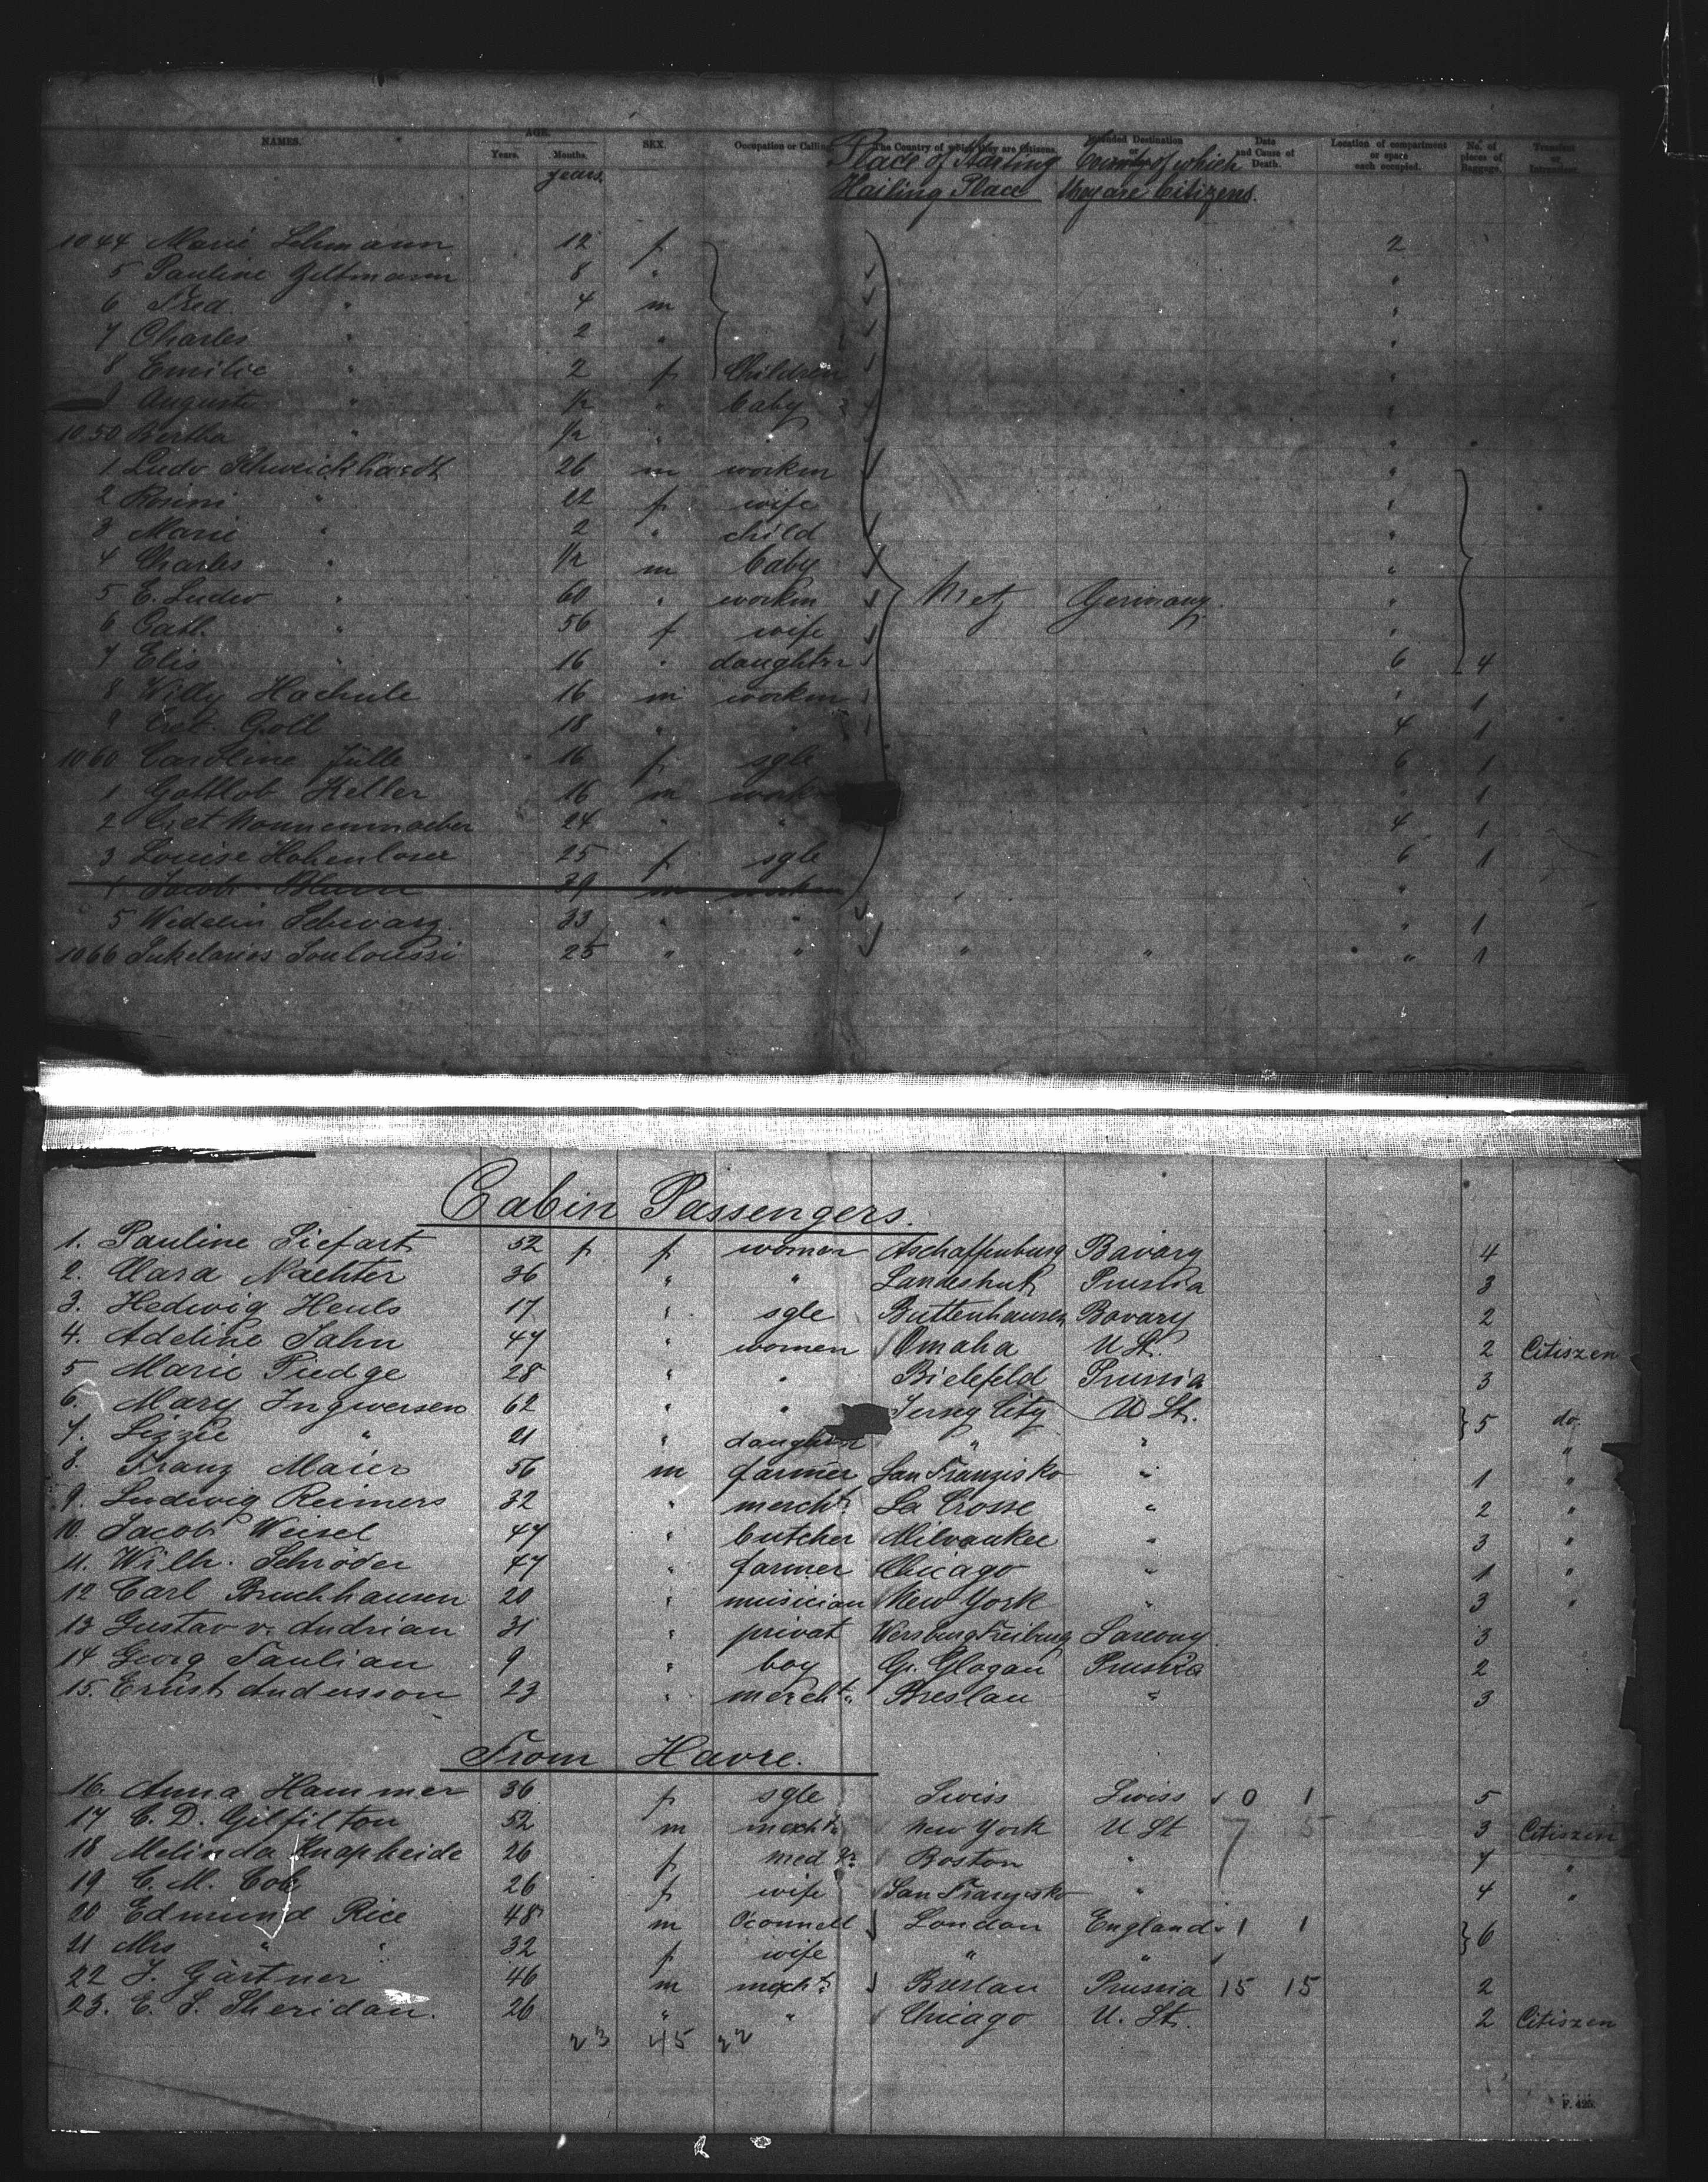 NAMES. AGE. Years. Months. SEX. Occupation or Calling. The Country of which they are Citizens. Intended Destination or Date and Cause of Death. Location of compartment or space each occupied. No. of pieces of Baggage. Transient or
years. Place of Starting Country of which
Hailing Place they are Citizens.
1044 Marie Lehmann 12 f 2
5 Pauline Geltmann 8 "
6 Fred. " 4 m "
7 Charles " 2 " "
8 Emilie " 2 f Children "
9 Auguste " 1/2 " baby "
1050 Bertha " 1/2 " " "
1 Ludv. Schweickhardt 26 m workm "
2 Rosini " 22 f wife "
3 Marie " 2 " child "
4 Charles " 1/2 m baby "
5 E. Ludw " 60 " workm Metz Germany. "
6 Cath. " 56 f wife "
7 Elis " 16 " daughter 6 4
8 Willy Hachule 16 m workm " 1
9 Goll 18 " " 4 1
1060 Caroline Jülle 16 f sgle 6 1
1 Gottlob Keller 16 m work " 1
2 24 " " 4 1
3 Louise Hohenloser 25 f sgle 6 1
4 Jacob Blum 39 m workm "
5 Wedelin Schwarz 33 " " " 1
1066 25 " " " " " 1
Cabin Passengers.
1. Pauline Liefart 52 f f women Aschaffenburg Bavary 4
2. Clara Nachter 36 " " Landeshut Prussia 3
3. Hedwig Heuls 17 " sgle Buttenhausen Bavary 2
4. Adeline Jahn 47 " women Omaha U St. 2 Citiszen
5 Marie Piedge 28 " " Bielefeld Prussia 3
6. Mary Ingwersen 62 " " Jersey City U St. } 5 do.
7. Lizzie " 21 " daughter " " "
8. Franz Maier 56 m farmer San Franzisko " 1 "
9. Ludwig Reimers 32 " merch't. La Crosse " 2 "
10. Jacob Weisel 47 " butcher Milvaukee " 3 "
11. Wilh. Schröder 47 " farmer Chicago " 1 "
12 Carl Bruchhausen 20 " musician New York " 3 "
13 Gustav v. Andrian 31 " privat Freiburg 3
14 Georg Paulian 9 " boy Gr. Glogau Prussia 2
15. Ernst Andersson 23 " mercht. Breslau " 3
From Havre.
16. Anna Hammer 36 f sgle Swiss Swiss 0 1 5
17 C. D. Gilfilton 52 m mercht. New York U St 7 5 3 Citiszen
18 Melinda Knapheide 26 f med Dr. Boston " 7 "
19 C. M. Cob 26 f wife San Franzisko " 4 "
20 Edmund Rice 48 m O'connell London England 1 1 } 6
21 Mrs " " 32 f wife " "
22 J. Gärtner 46 m mercht. Breslau Prussia 15 15 2
23. E. S. Sheridan. 26 " " Chicago U. St. 2 Citiszen
23 45 22
F. 425.